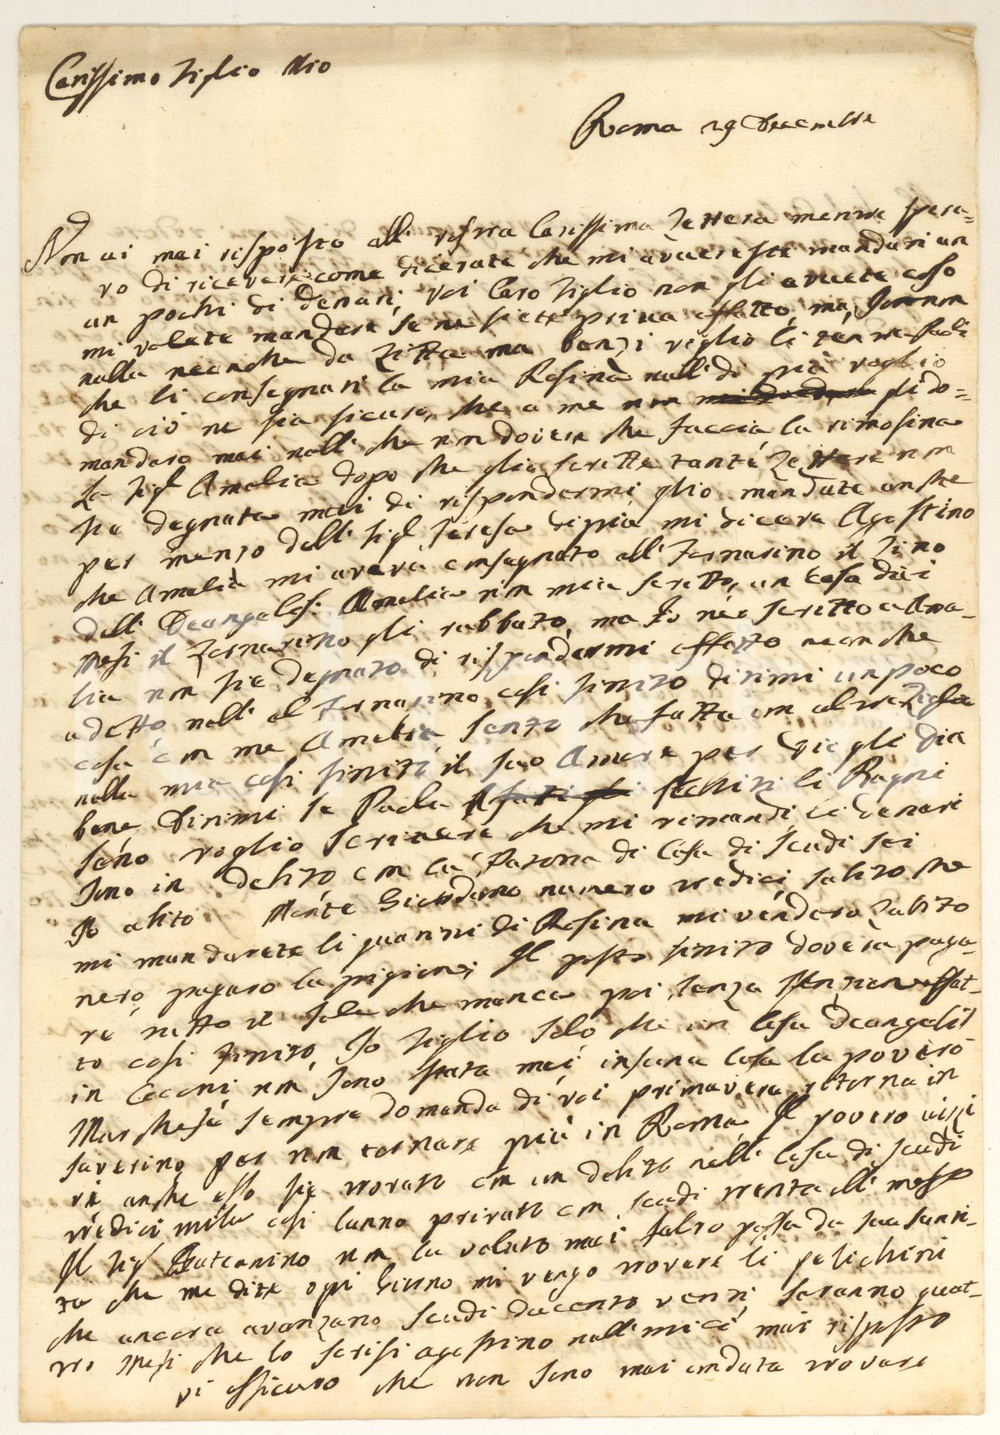 Carissimo Figlio Mio
Roma 29 Decembre
Non vi mai risposto alli vostra Carissima Lettera mentre spera=
vo di ricevere come dicevate che mi avvereste mandari un
un pochi di denari, voi Caro Figlio non gli avvete coso
mi volete mandare se ne siete priva affatto, ma, Io non
nulla neanche da ma benzi viglio li
che li consegnati la mia Rosina nulli di più voglio
di ciò ne sia sicuro, che a me non gli do=
mandaro mai nulli che non dovere che faccia la rimosina
La Sigl Amalia dopo che glio scritte tante Lettere non
sia degnata mai di rispondermi glio mandate anche
per menzo delli Sigl Teresa dipiù mi diceva Agostino
che Amalia mi aveva consegnato alli Fornarino il Lino
delli Deangelisi Amalia non mia scritto, un cosa dici
Mesi il Fornarino gli rubbato, ma Io nèo scritto a Ama=
lia non sie degnato di rispondermi affatto neanche
a detto nulli al Fornarino, cosi finito dirimi un poco
cosa con me Amalia senzo che fatta con altre Figlia
nulla mia cosi finito il suo Amore per gli dia
bene Dirimi se Paola li Ragni
seno voglio scrivere che mi rimandi li denari
sono in debito con la Padrona di Casa di scudi sei
Io abito Monte Giordano numero tredici subito che
mi mandarete li quatrini di Rosina mi vendero subito
nero, pagaro la pigione, Il posto finito doverà paga=
re nitto il sole che manca poi senza affat=
to cosi finito, Io Figlio solo che in Casa Deangelisi
in Ceconi non sono stata mai insuna Casa la povero
Marchese sempre domanda di voi primavera ritorna in
saverino per non tornare più in Roma Il povero
re anche esso sie trovato con un debito nelli Casa di scudi
tredici mila cosi lanno privato con scudi trenta alli mese
Il Sigl non la voluto mai salto passa da sua santi=
tà che me dite ogni Giorno mi vengo trovare li pelichini
che ancora avanzano scudi ducento venti saranno quat=
tro Mesi che lo scrisi agostino nulli mici mai risposto
vi assicuro che non sono mai andata trovare